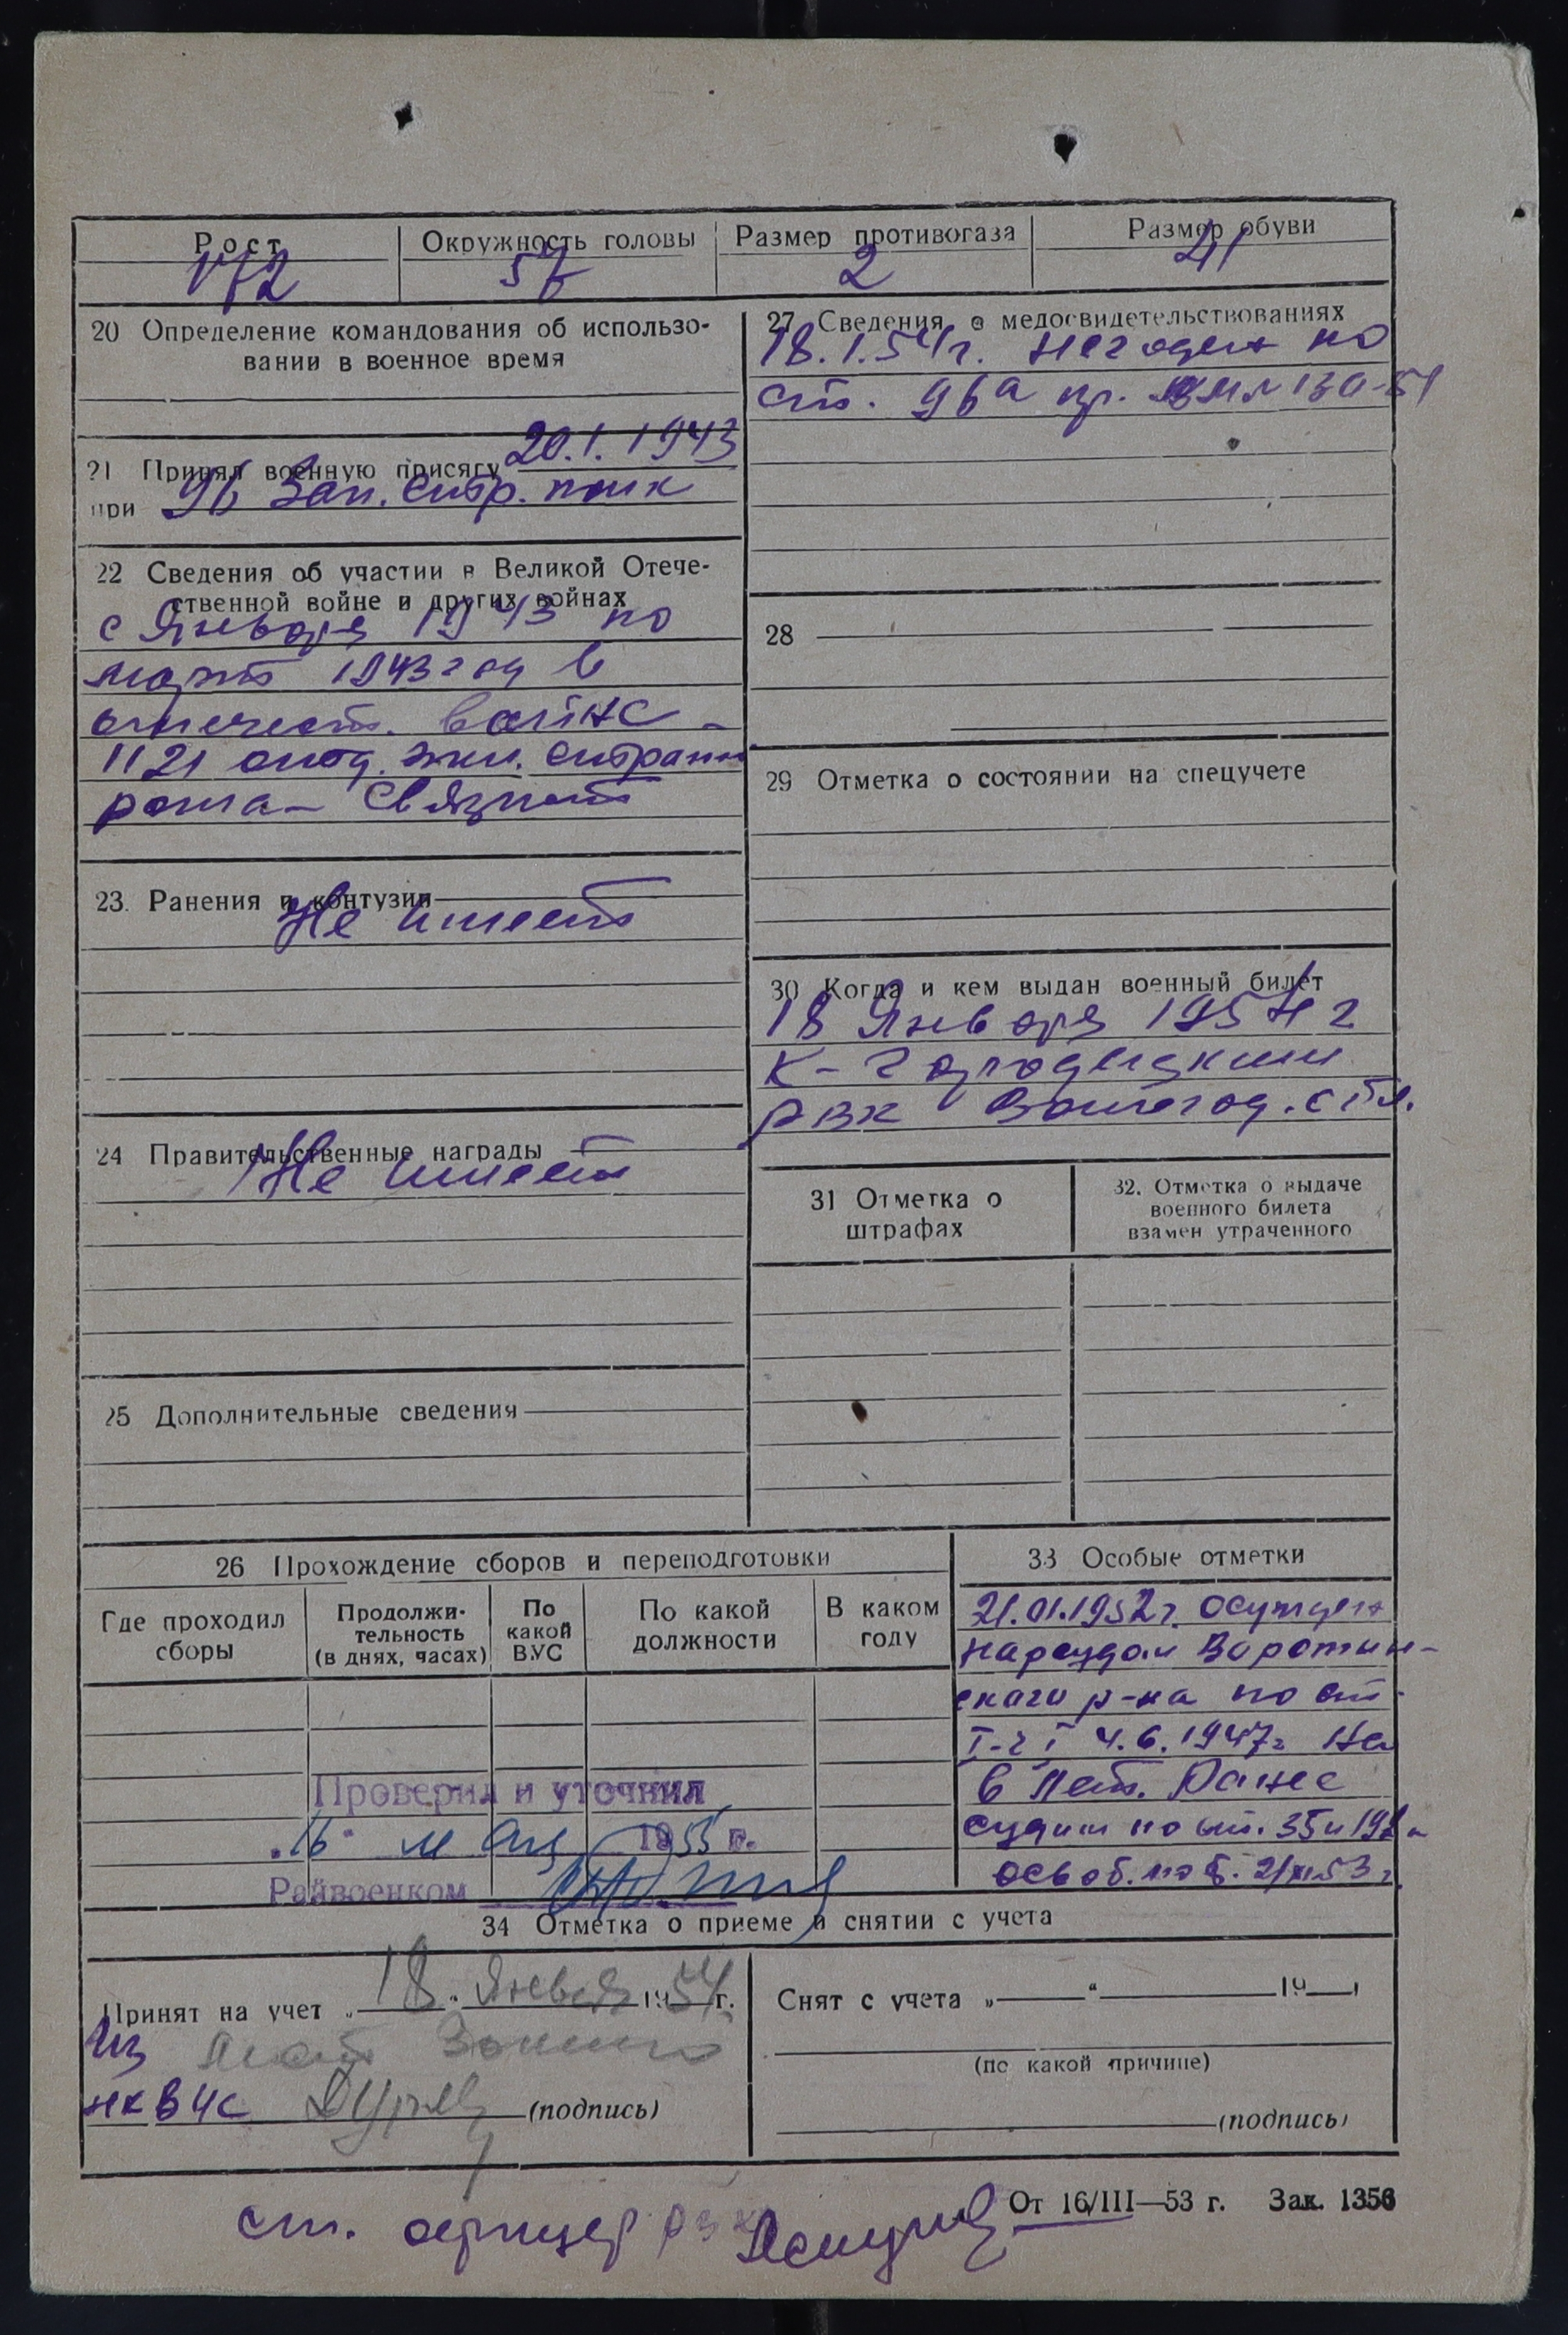 Рост
Окружность головы
Размер противогаза
Размер обуви
172
57
2
41
20 Определение командования об использо-
вании в военное время
21 Принял военную присягу 20.1.1943
при 96 Зап. стр. полк
22 Сведения об участии в Великой Отече-
ственной войне и других войнах
с Января 1943 по
март 1943 год в
отечеств. войне -
1121 отд.
рота - Связист
23. Ранения и контузии
Не имеет
24 Правительственные награды
Не имеет
25 Дополнительные сведения
27 Сведения о медосвидетельствованиях
18.1.54г. Негоден по
ст. 96а пр.
28
29 Отметка о состоянии на спецучете
30 Когда и кем выдан военный билет
18 Января 1954 г
К-Городецким
РВК Вологод. обл.
31 Отметка о
штрафах
32. Отметка о выдаче
военного билета
взамен утраченного
26 Прохождение сборов и переподготовки
Где проходил
сборы
Продолжи-
тельность
(в днях, часах)
По
какой
ВУС
По какой
должности
В каком
году
33 Особые отметки
21.01.1952г. осужден
нарсудом Воротын-
ского р-на по ст.
I-ч I 4.6.1947г На
6 лет. Ранее
судим по ст. 35 и 192
освоб. по б. 21/XI-53 г.
Проверил и уточнил
"16" мая 1955 г.
Райвоенком
34 Отметка о приеме и снятии с учета
Принят на учет „18" Января 1954 г.
Из
(подпись)
Снят с учета „ " 19
(по какой причине)
(подпись)
От 16/III—53 г. Зак. 1356
ст. офицер РВК